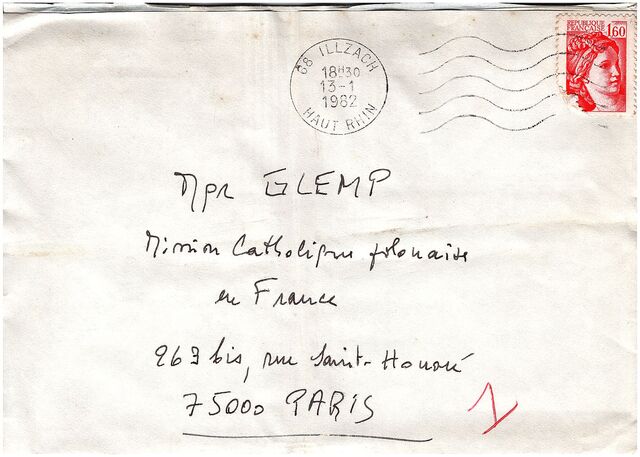 RÉPUBLIQUE FRANÇAISE
1,60
68 ILLZACH
18H30
13-1
1982
HAUT RHIN
Mgr GLEMP
Mission Catholique polonaise
en France
263 bis, rue Saint-Honoré
75000 PARIS
1